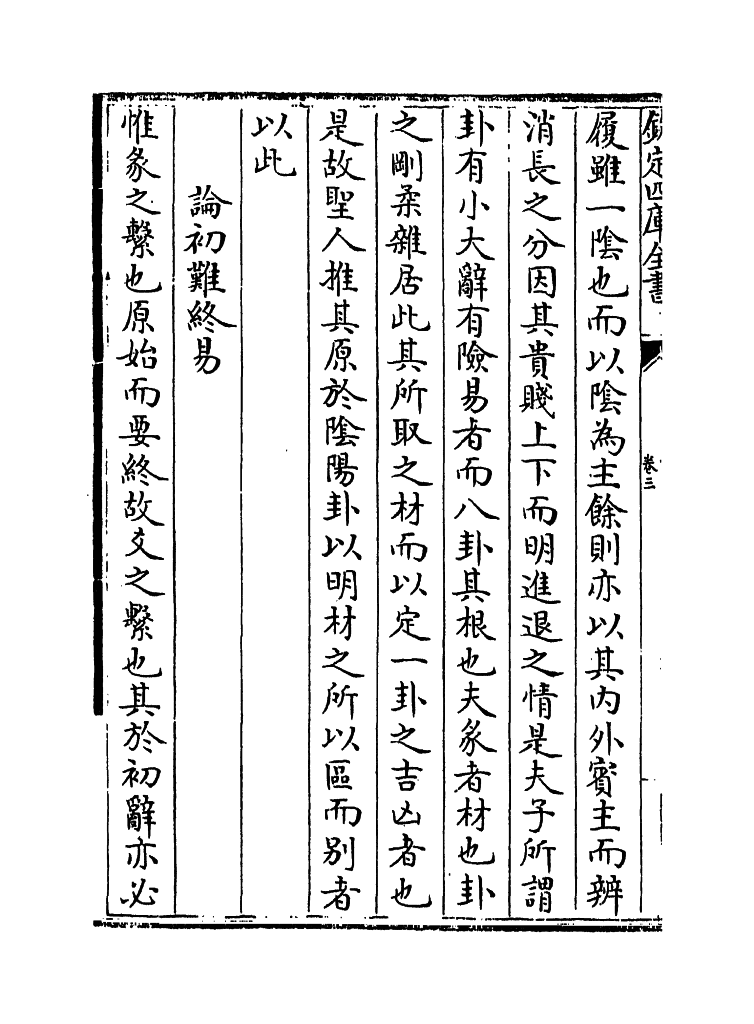 欽定四庫全書
卷三
履雖一陰也而以陰為主餘則亦以其内外賓主而辨
消長之分因其貴賤上下而明進退之情是夫子所謂
卦有小大辭有險易者而八卦其根也夫彖者材也卦
之剛柔雜居此其所取之材而以定一卦之吉凶者也
是故聖人推其原於陰陽卦以明材之所以區而别者
以此
論初難終易
惟彖之繫也原始而要終故爻之繫也其於初辭亦必